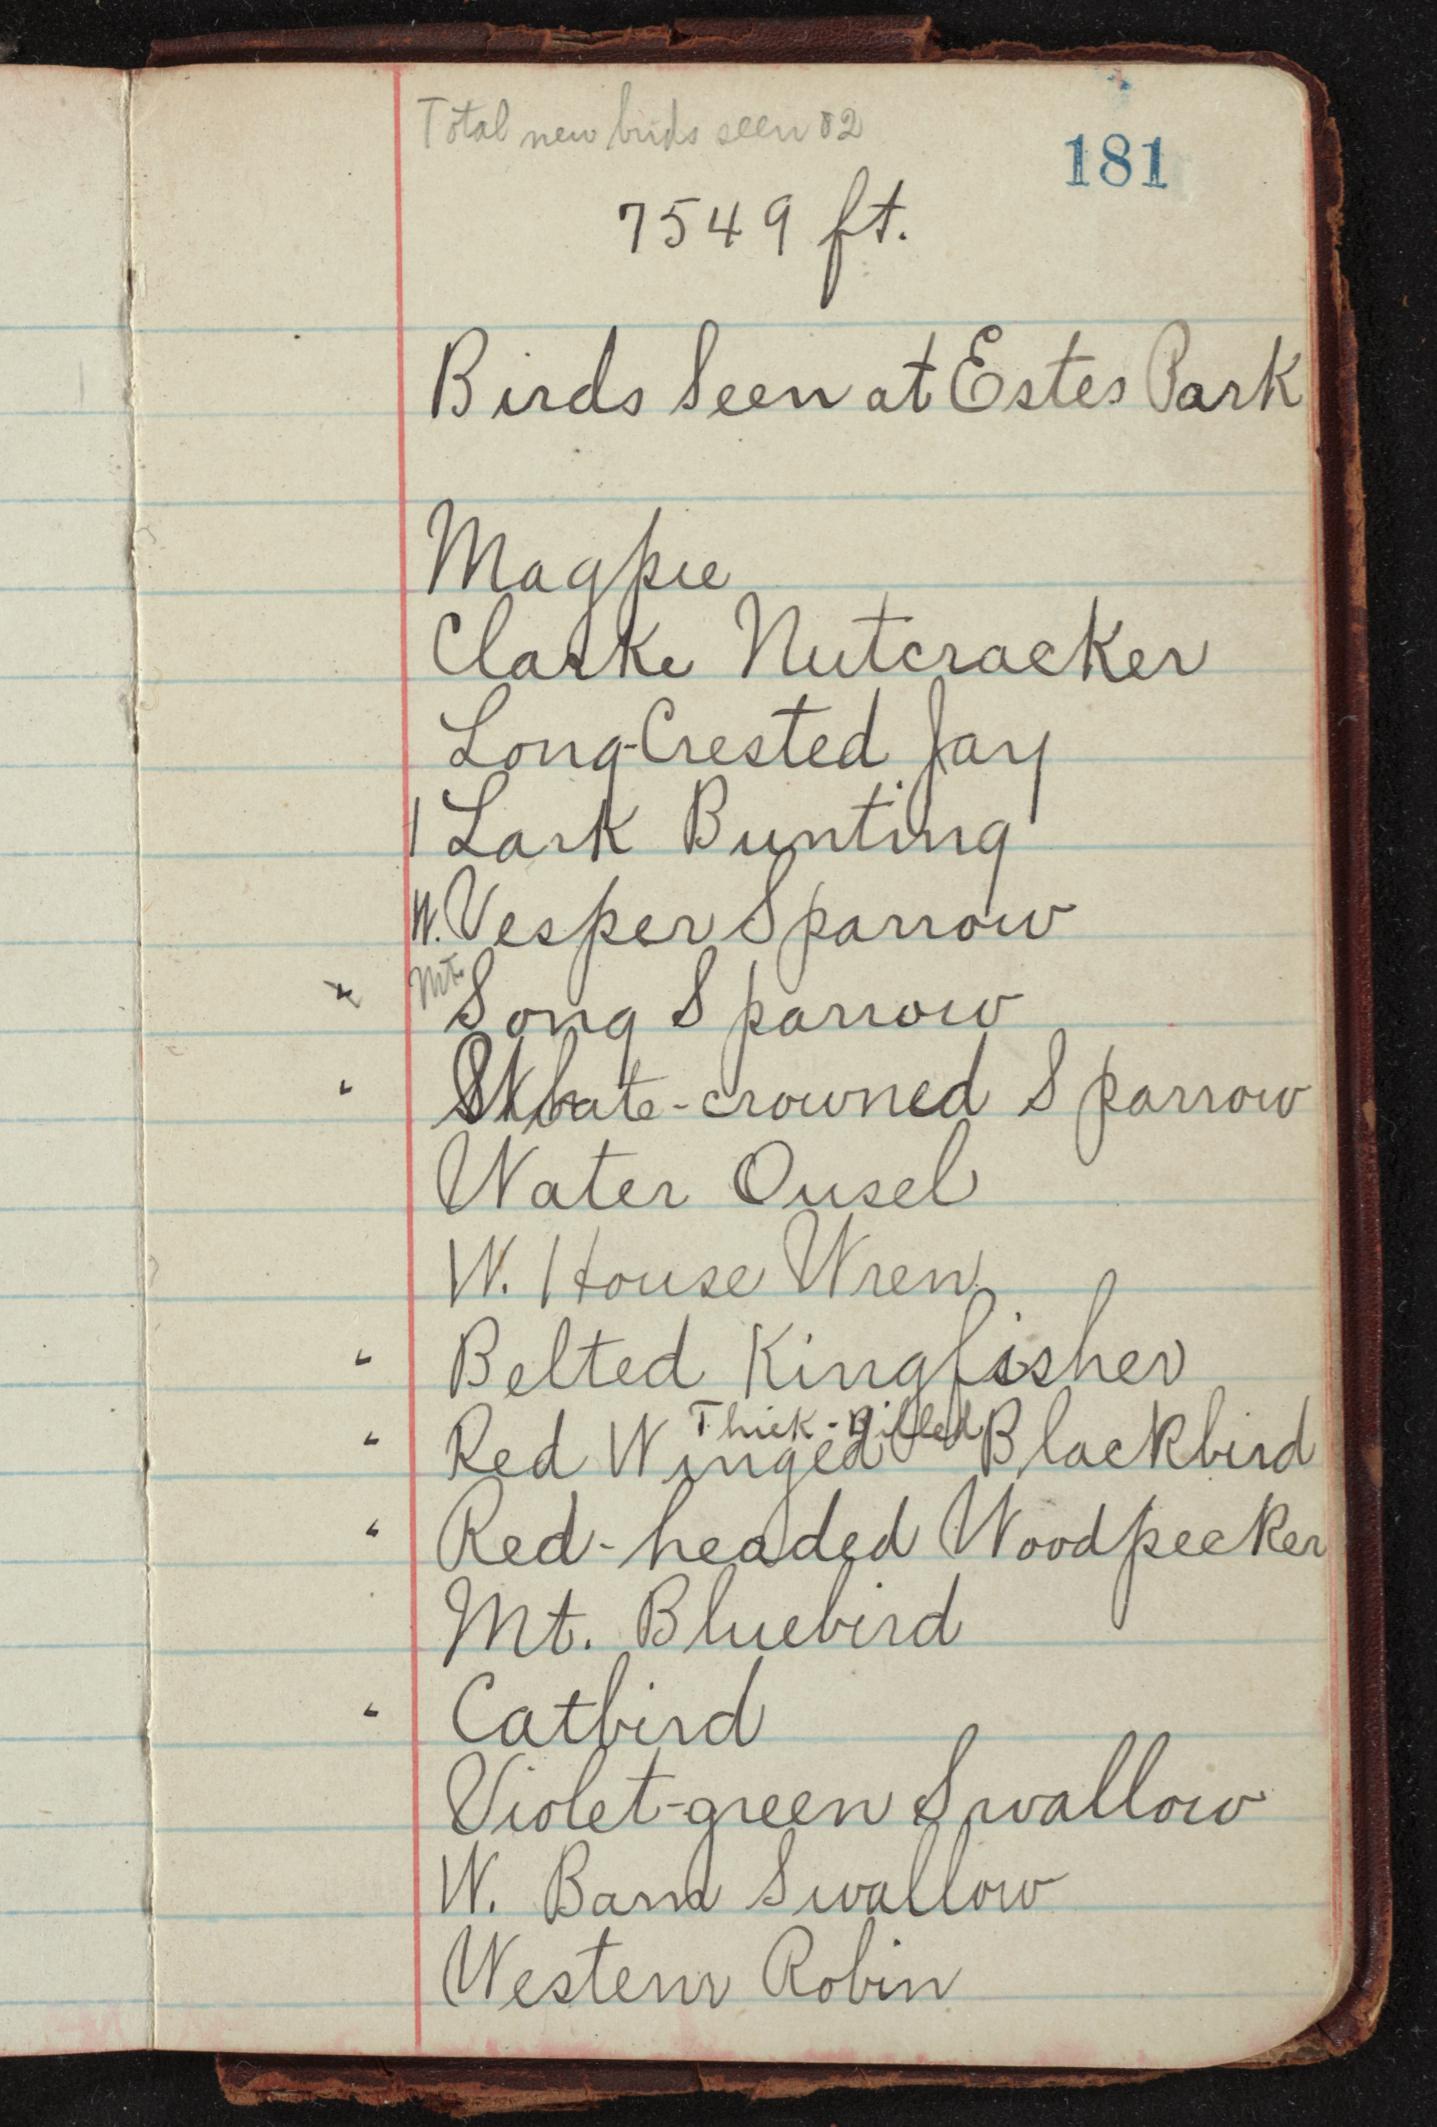 Total new birds seen 82
181
7549 ft.
Birds Seen at Estes Park
Magpie
Clarke Nutcracker
Long-Crested Jay
1 Lark Bunting
W. Vesper Sparrow
Mt. Song Sparrow
White-crowned Sparrow
Water Ousel
W. House Wren
Belted Kingfisher
Thick-Billed
Red Winged Blackbird
Red-headed Woodpecker
Mt. Bluebird
Catbird
Violet-green Swallow
W. Barn Swallow
Western Robin